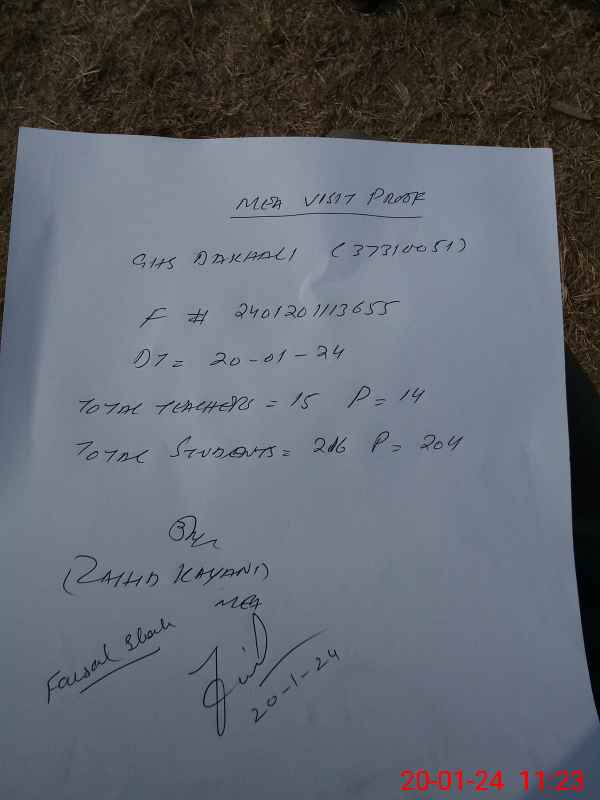 MEA VISIT PROOF
GHS DAKHALI (37310051)
F # 2401201113655
DT = 20-01-24
TOTAL TEACHERS = 15 P = 14
TOTAL STUDENTS = 216 P = 204
(RASHID KAYANI)
MEA
Faisal Shah
20-1-24
20-01-24 11:23